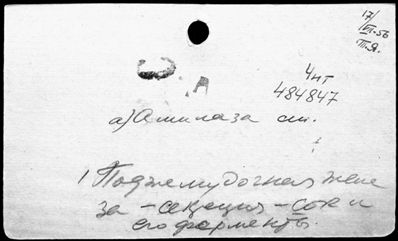 17/
VI-56
Т.Я.
Чит
484847
а) Амилаза см.
1 Поджелудочная желе
за - секреция - сок и
его ферменты.